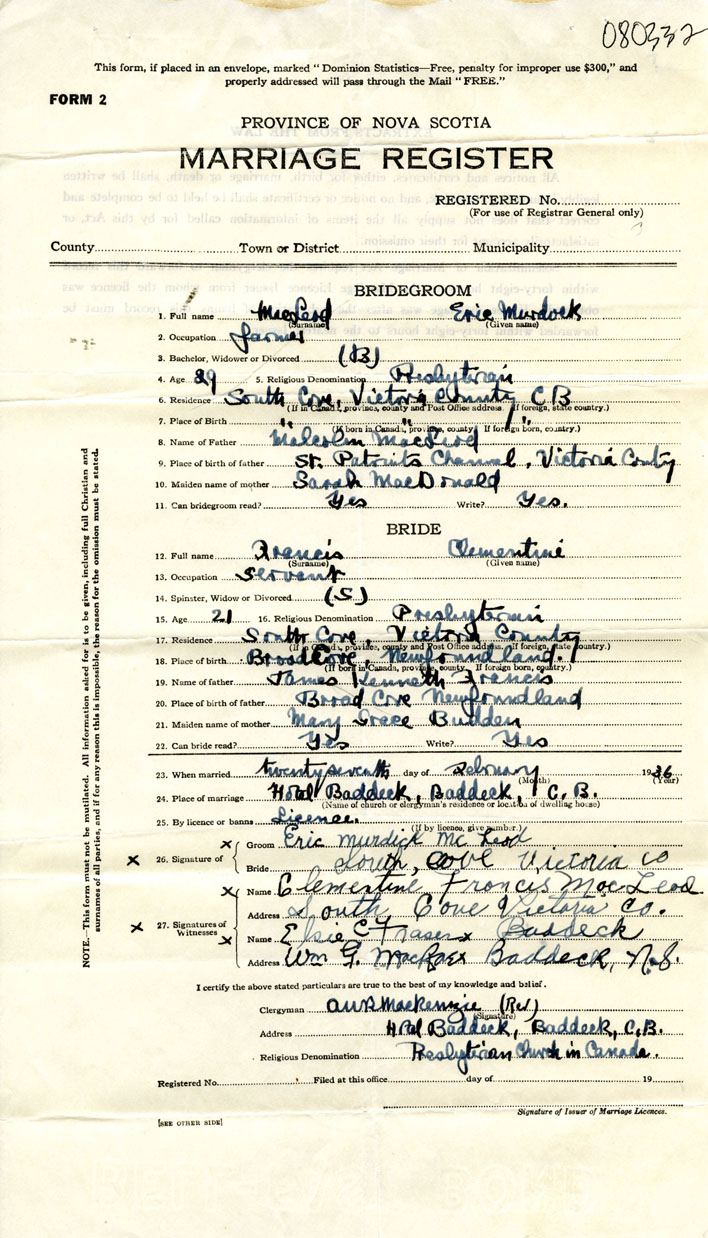 080332
This form, if placed in an envelope, marked "Dominion Statistics—Free, penalty for improper use $300," and
properly addressed will pass through the Mail "FREE."
FORM 2
PROVINCE OF NOVA SCOTIA
MARRIAGE REGISTER
REGISTERED No.
(For use of Registrar General only)
County Town or District Municipality
BRIDEGROOM
1. Full name MacLeod Eric Murdock
(Surname) (Given name)
2. Occupation farmer
3. Bachelor, Widower or Divorced (B)
4. Age 29 5. Religious Denomination Presbyterian
6. Residence South Cove, Victoria County, C B
(If in Canada, province, county and Post Office address. If foreign, state country.)
7. Place of Birth " " "
(If born in Canada, province, county. If foreign born, country.)
8. Name of Father Malcolm MacLeod
9. Place of birth of father St. Patricks Channel, Victoria County
10. Maiden name of mother Sarah MacDonald
11. Can bridegroom read? Yes Write? Yes.
BRIDE
12. Full name Francis Clementine
(Surname) (Given name)
13. Occupation Servant
14. Spinster, Widow or Divorced (S)
15. Age 21 16. Religious Denomination Presbyterian
17. Residence South Cove, Victoria County
(If in Canada, province, county and Post Office address. If foreign, state country.)
18. Place of birth Broad Cove, Newfoundland.
(If born in Canada, province, county. If foreign born, country.)
19. Name of father James Kenneth Francis
20. Place of birth of father Broad Cove Newfoundland
21. Maiden name of mother Mary Grace Budden
22. Can bride read? Yes Write? Yes
23. When married twenty seventh day of February 1936
(Month) (Year)
24. Place of marriage Hotel Baddeck, Baddeck, C. B.
(Name of church or clergyman's residence or location of dwelling house)
25. By licence or banns Licence.
(If by licence, give number.)
x Groom Eric Murdick Mc Leod
x 26. Signature of
Bride South, Cove Victoria co
x Name Clementine Francis MacLeod
Address South Cove Victoria Co.
x 27. Signatures of Witnesses
x Name Elsie C Fraser x Baddeck
Address Wm G. MacRae x Baddeck, N.S.
I certify the above stated particulars are true to the best of my knowledge and belief.
Clergyman MacKenzie (Rev)
(Signature)
Address Hotel Baddeck, Baddeck, C.B.
Religious Denomination Presbyterian Church in Canada.
Registered No. Filed at this office day of 19
Signature of Issuer of Marriage Licences.
[SEE OTHER SIDE]
NOTE.—This form must not be mutilated. All information asked for is to be given, including full Christian and
surnames of all parties, and if for any reason this is impossible, the reason for the omission must be stated.